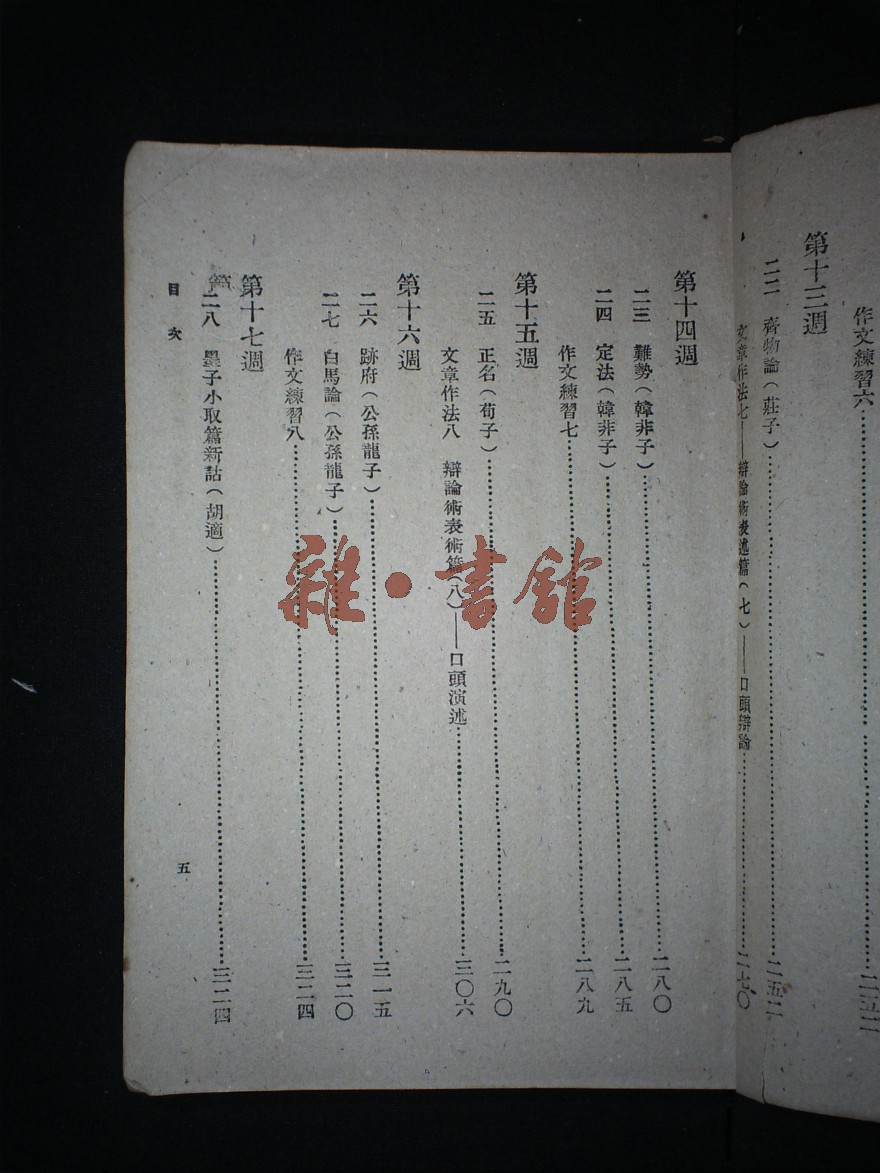 作文練習六……二五二
第十三週
二二 齊物論(莊子)……二五二
文章作法七——辯論術表述篇(七)——口頭辯論……二七〇
第十四週
二三 難勢(韓非子)……二八〇
二四 定法(韓非子)……二八五
作文練習七……二八九
第十五週
二五 正名(荀子)……二九〇
文章作法八 辯論術表術篇(八)——口頭演述……三〇六
第十六週
二六 跡府(公孫龍子)……三一五
二七 白馬論(公孫龍子)……三二〇
作文練習八……三二四
第十七週
二八 墨子小取篇新詁(胡適)……三二四
目次
五
雜·書館